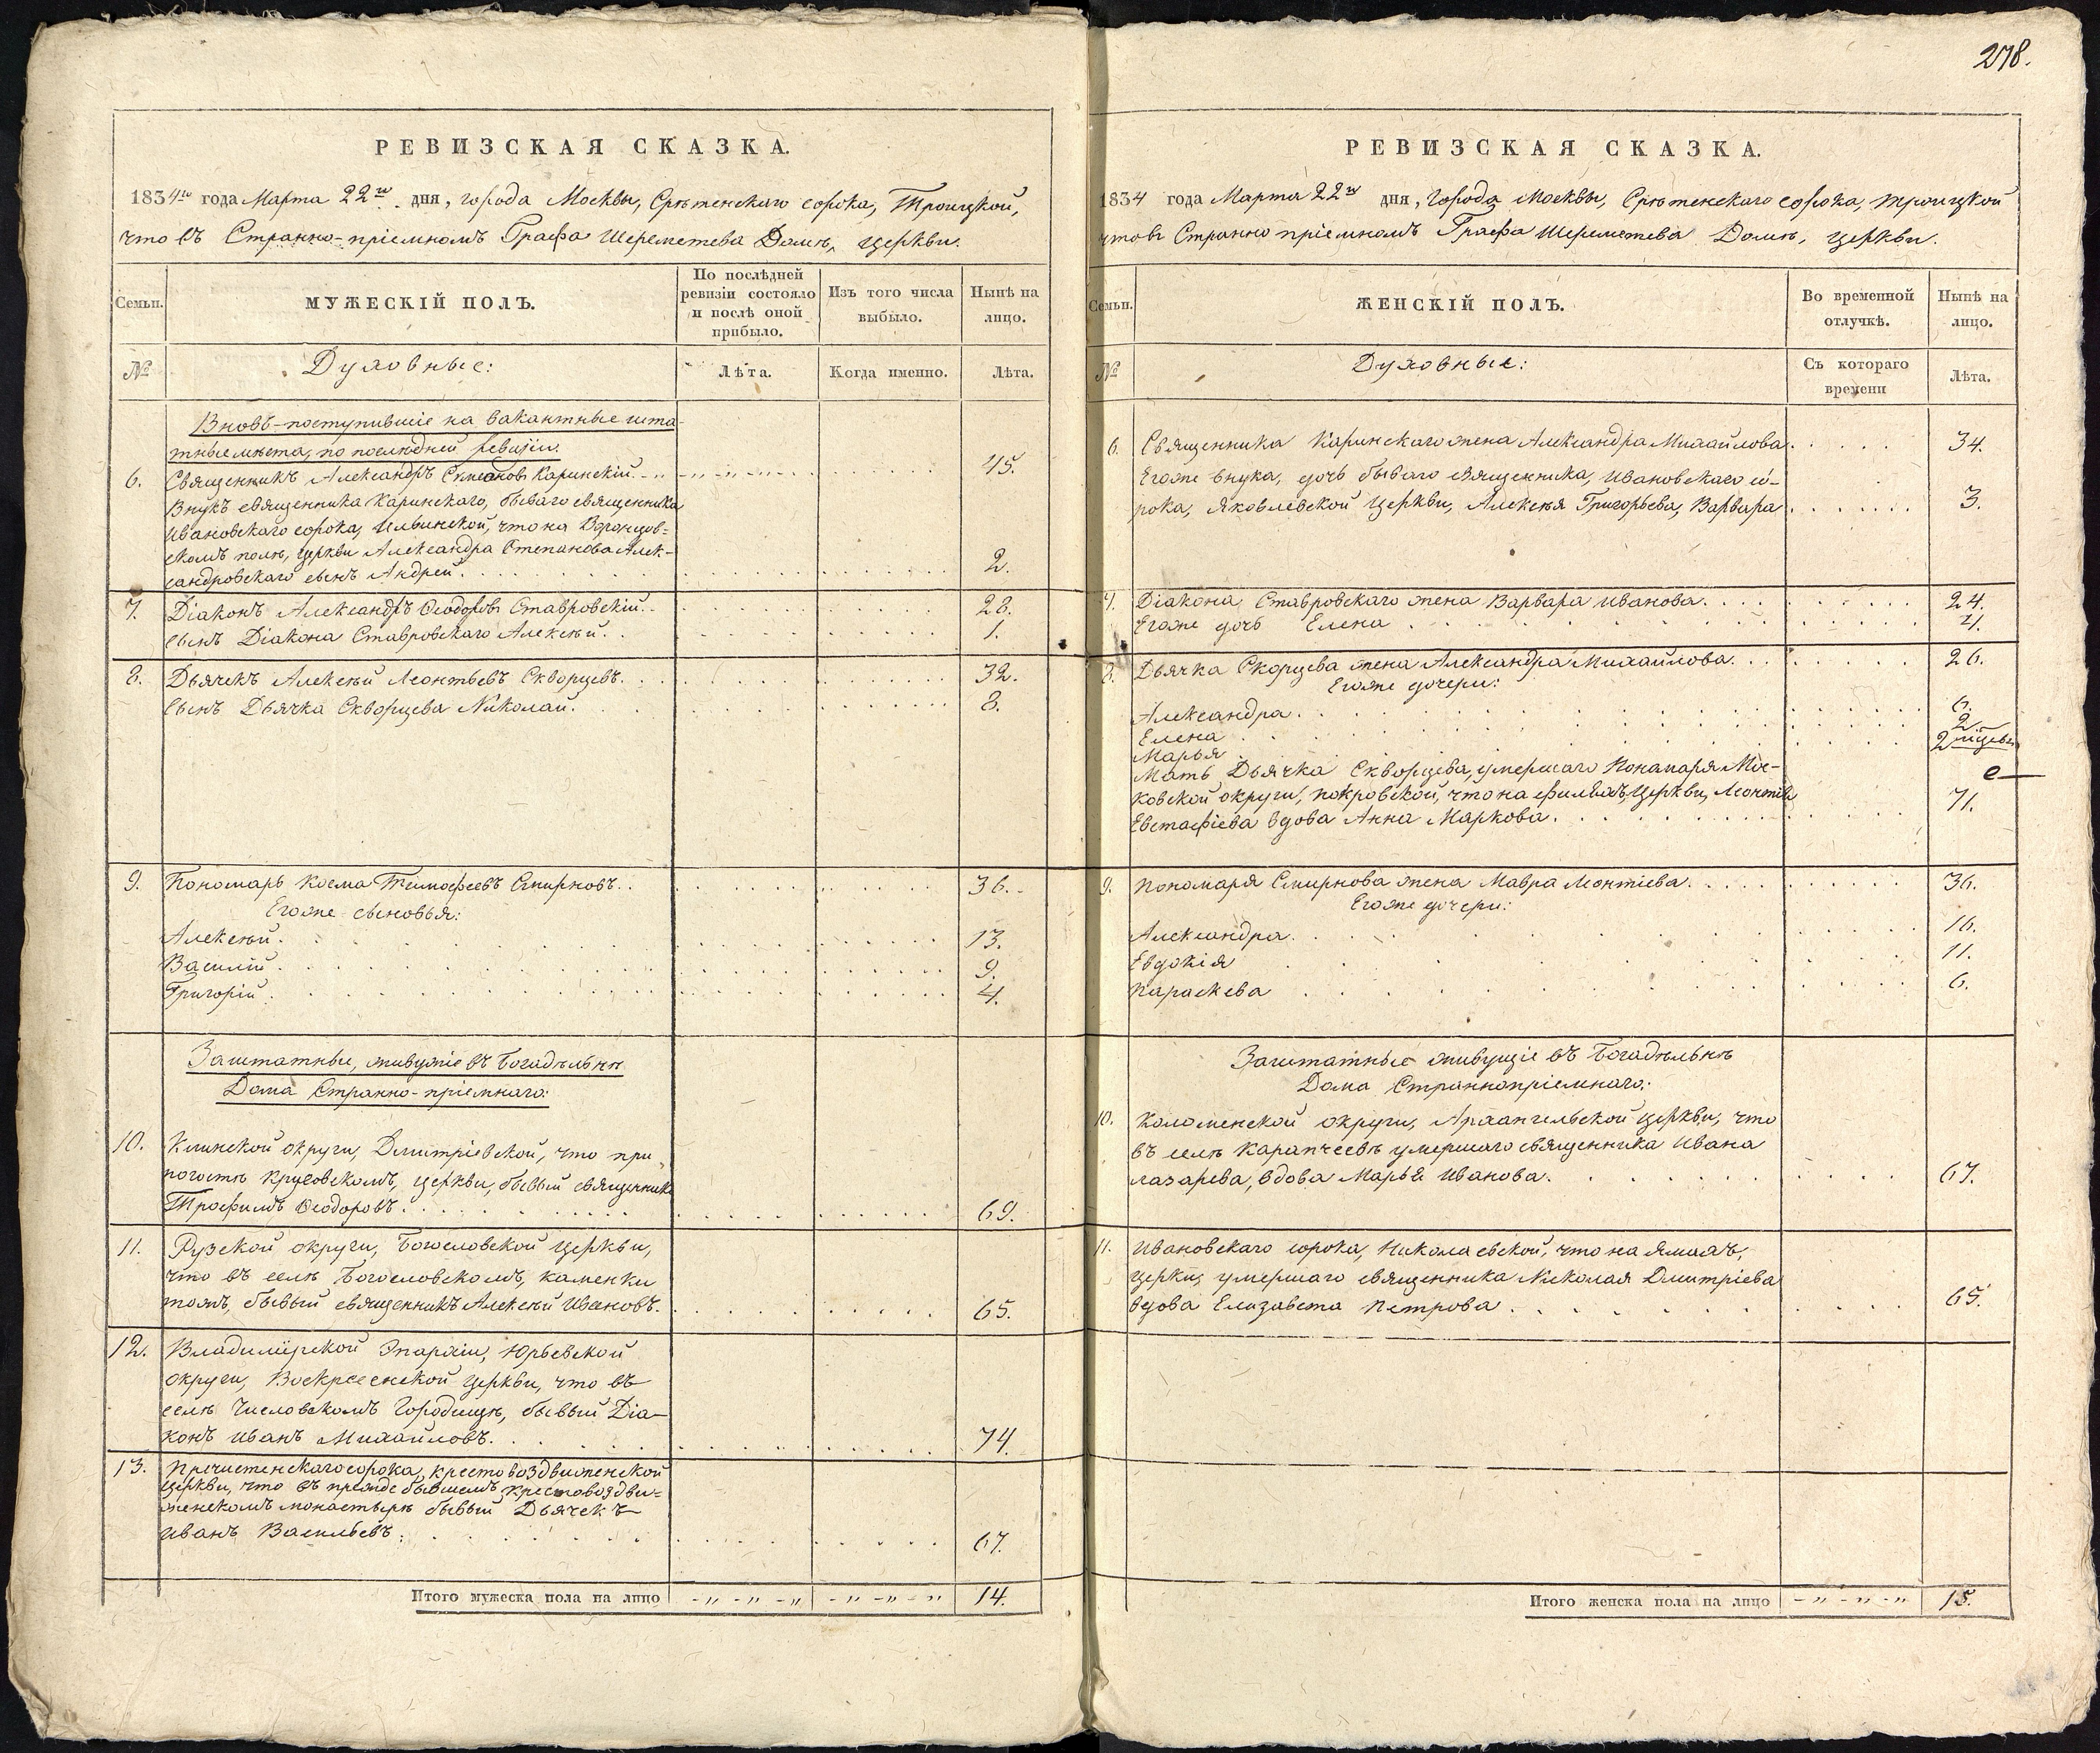 278.
РЕВИЗСКАЯ СКАЗКА.
1834го года Марта 22го дня, города Москвы, Срѣтенскаго сорока, Троицкой,
что въ Странно-пріемномъ Графа Шереметева Домѣ, церкви.
Семьи.
МУЖЕСКІЙ ПОЛЪ.
По послѣдней ревизіи состояло и послѣ оной прибыло.
Изъ того числа выбыло.
Нынѣ на лицо.
№
Духовные:
Лѣта.
Когда именно.
Лѣта.
Вновь-поступившіе на вакантные шта-
тные мѣста, по послѣдней ревизіи.
6. Священникъ Александръ Симеоновъ Каринскій. 45.
Внукъ священника Каринскаго, бываго священника
Ивановскаго сорока, Ильинской, что на Воронцов-
скомъ полѣ, церкви Александра Степанова Алек-
сандровскаго сынъ Андрей. 2.
7. Діаконъ Александръ Ѳеодоровъ Ставровскій. 28.
Сынъ Діакона Ставровскаго Алексѣй. 1.
8. Дьячекъ Алексѣй Леонтьевъ Скворцевъ. 32.
Сынъ Дьячка Скворцева Николай. 8.
9. Пономарь Косма Тимофеевъ Смирновъ. 36.
Егоже сыновья:
Алексѣй. 13.
Василій. 9.
Григорій. 4.
Заштатные, живущіе въ Богадѣльнѣ
Дома Странно-пріемнаго:
10. Клинской округи, Димитріевской, что при
погостѣ Круговскомъ, церкви, бывый священникъ
Трофимъ Ѳеодоровъ. 69.
11. Рузской округи, Богословской церкви,
что въ селѣ Богословскомъ, каменки
тожъ, бывый священникъ Алексѣй Ивановъ. 65.
12. Владимірской Эпархіи, Юрьевской
округи, Воскресенской церкви, что въ
селѣ Числовскомъ Городищѣ, бывый Діа-
конъ Иванъ Михайловъ. 74.
13. Пречистенскаго сорока, крестовоздвиженской
церкви, что въ прежде бывшемъ крестовоздви-
женскомъ монастырѣ бывый Дьячекъ
Иванъ Васильевъ. 67.
Итого мужеска пола на лицо 14.
РЕВИЗСКАЯ СКАЗКА.
1834 года Марта 22го дня, Города Москвы, Срѣтенскаго сорока, Троицкой
что въ Странно пріемномъ Графа Шереметева Домѣ, церкви.
Семьи.
ЖЕНСКІЙ ПОЛЪ.
Во временной отлучкѣ.
Нынѣ на лицо.
№
Духовные:
Съ котораго времени
Лѣта.
6. Священника Каринскаго жена Александра Михайлова. 34.
Егоже внука, дочь бываго священника, Ивановскаго со-
рока, Яковлевской церкви, Алексѣя Григорьева, Варвара 3.
7. Діакона Ставровскаго жена Варвара Иванова. 24.
Егоже дочь Елена 4.
8. Дьячка Скорцева жена Александра Михайлова. 26.
Егоже дочери:
Александра. 6.
Елена 2.
Марья 2 мѣсяцевъ
Мать Дьячка Скворцева, умершаго Понамаря Мос-
ковской округи, покровской, что на филяхъ, церкви, Леонтія
Евстафіева вдова Анна Маркова. 71.
9. Пономаря Смирнова жена Мавра Леонтіева. 36.
Егоже дочери:
Александра. 16.
Евдокія 11.
Параскева 6.
Заштатные живущіе въ Богадѣльнѣ
Дома Страннопріемнаго:
10. Коломенской округи, Архангельской церкви, что
въ селѣ Карапчеевѣ умершаго священника Ивана
лазарева, вдова Марья Иванова. 67.
11. Ивановскаго сорока, Николаевской, что на Ямахъ,
церкви, умершаго священника Николая Димитріева
вдова Елизавета Петрова. 65.
Итого женска пола на лицо 15.